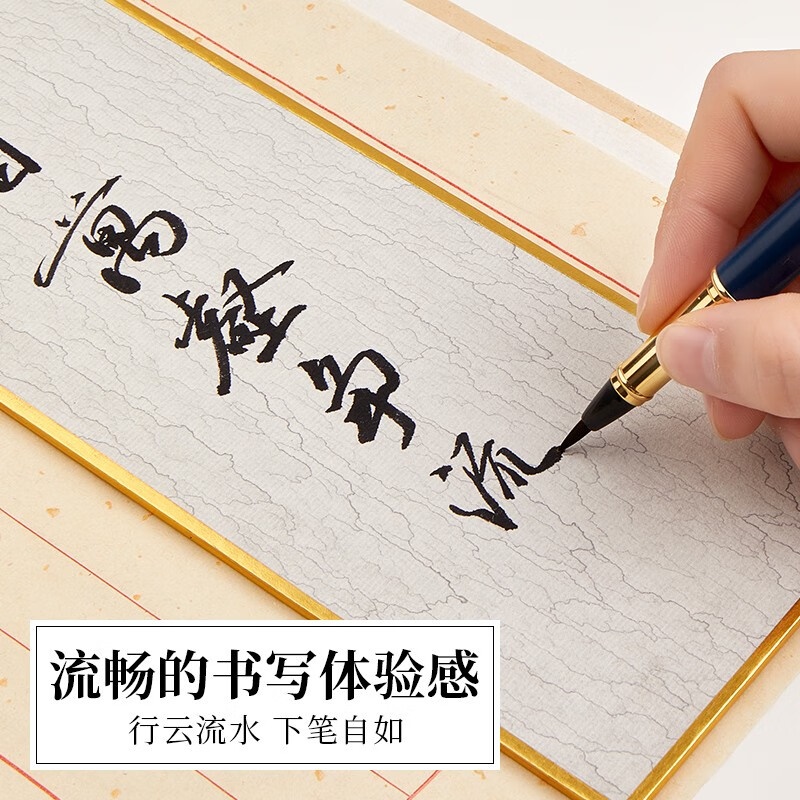 萬壑争流
流畅的书写体验感
行云流水 下笔自如